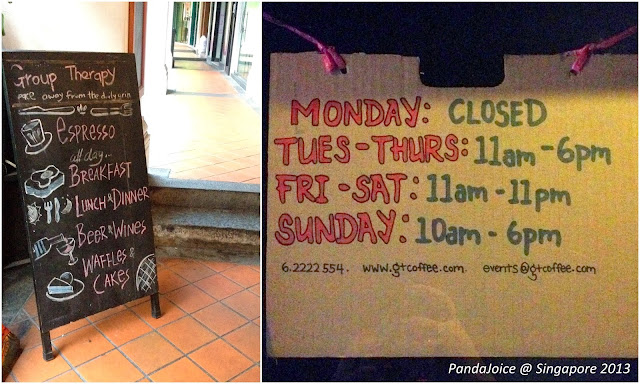 Group Therapy
away from the daily grin
espresso
all day...
BREAKFAST
LUNCH & DINNER
BEER & WINES
WAFFLES &
CAKES
MONDAY: CLOSED
TUES-THURS: 11am-6pm
FRI-SAT: 11am-11pm
SUNDAY: 10am-6pm
6.2222 554. www.gtcoffee.com. events@gtcoffee.com
PandaJoice @ Singapore 2013